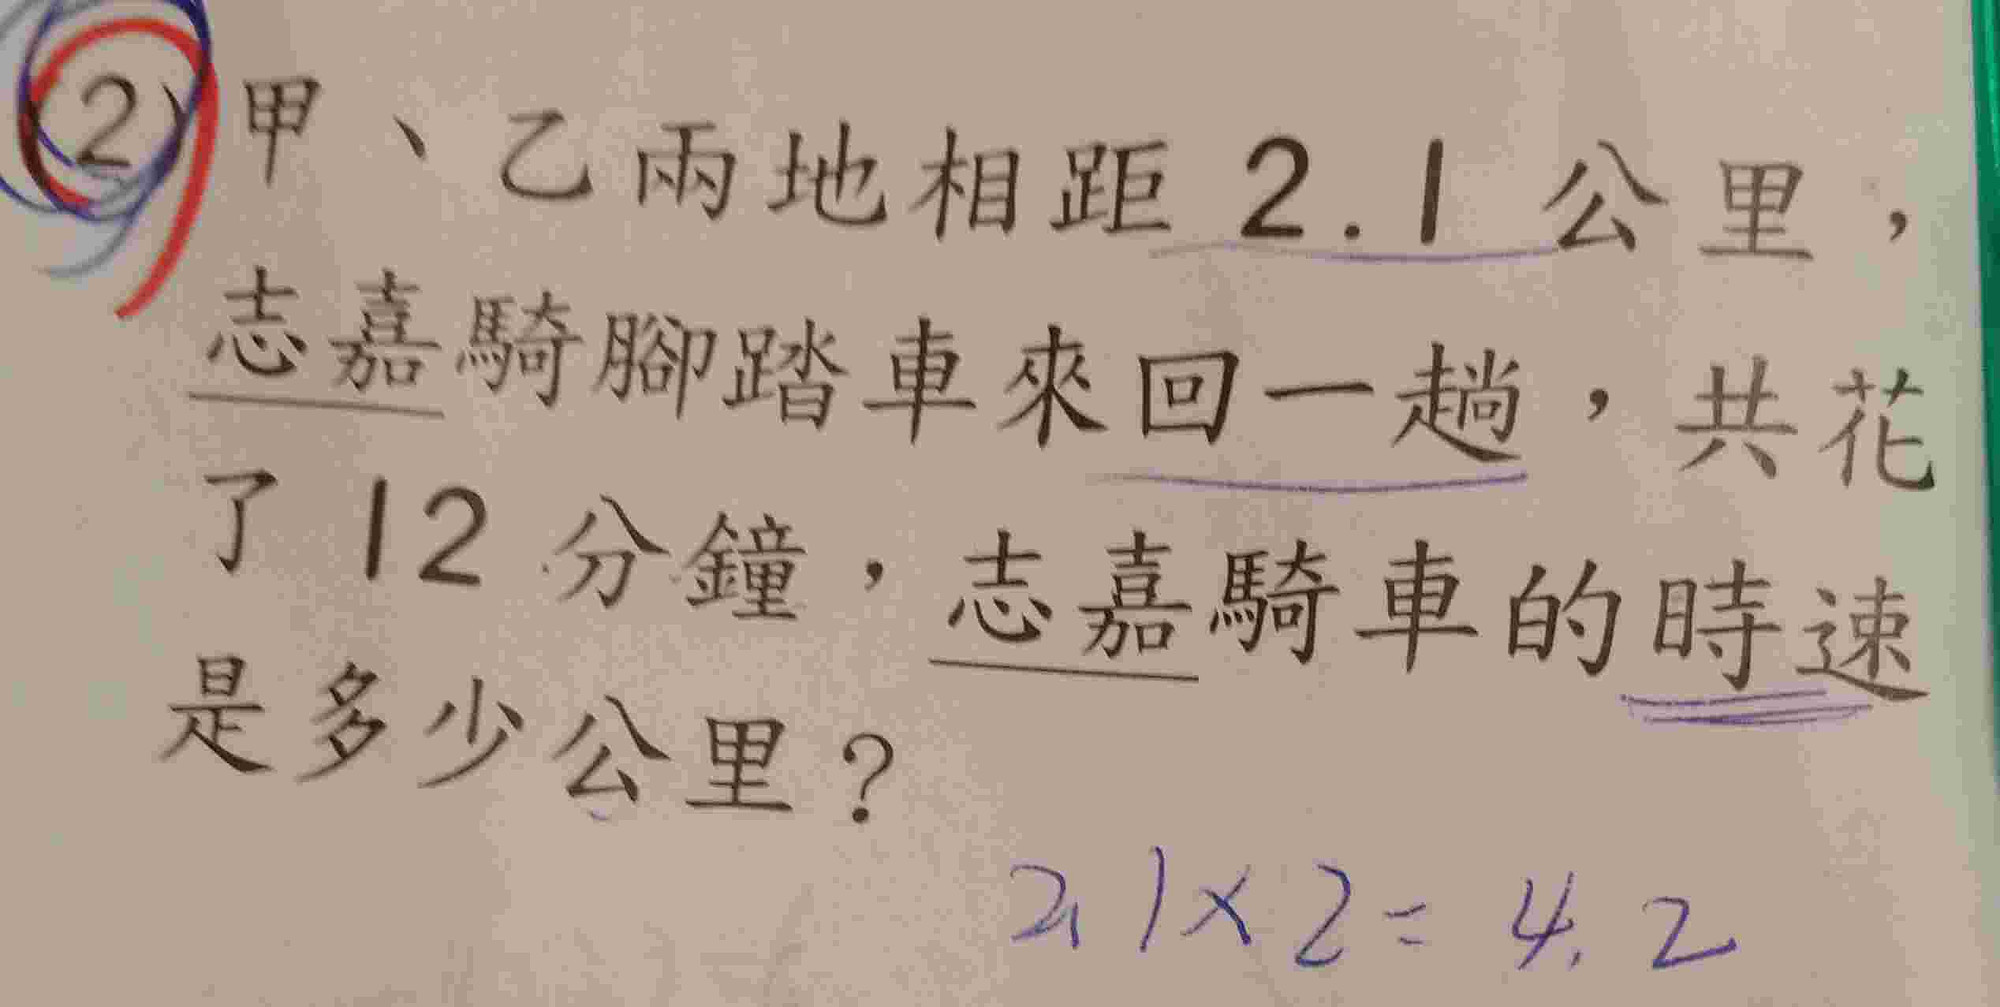 (2) 甲、乙兩地相距 2.1 公里，
志嘉騎腳踏車來回一趟，共花
了 12 分鐘，志嘉騎車的時速
是多少公里？
2.1×2=4.2